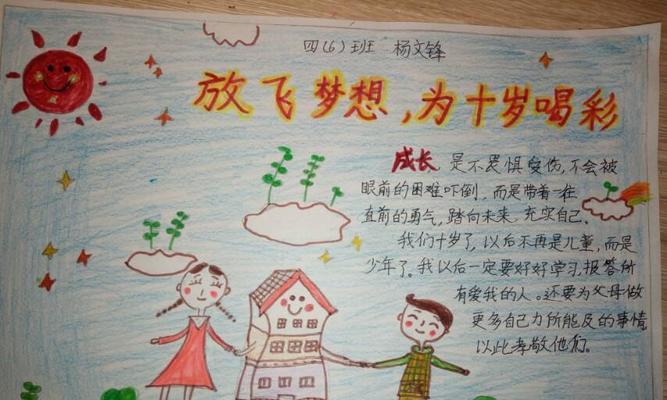 四(6)班 杨文锋
放飞梦想,为十岁喝彩
成长 是不畏惧受伤,不会被
眼前的困难吓倒,而是带着一往
直前的勇气,踏向未来,充实自己.
我们十岁了,以后不再是儿童,而是
少年了。我以后一定要好好学习,报答所
有爱我的人。还要为父母做
更多自己力所能及的事情,
以此孝敬他们。